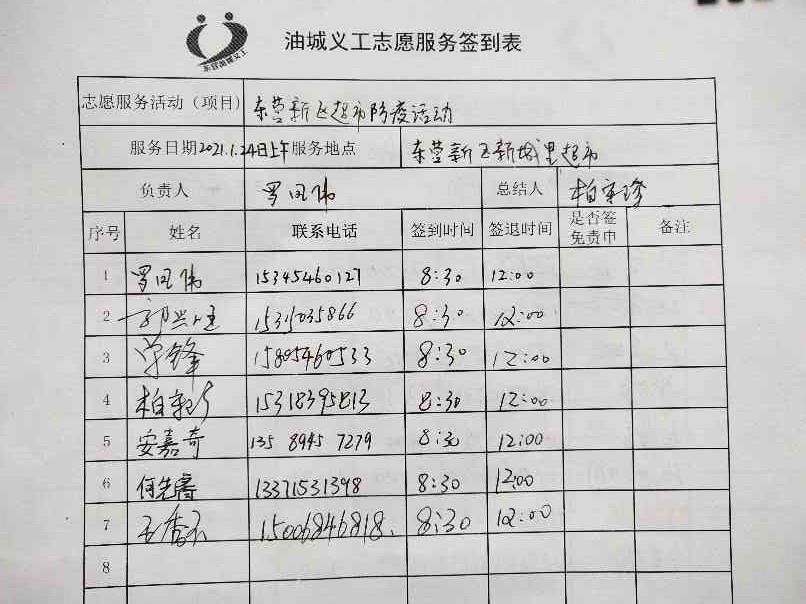 东营油城义工
油城义工志愿服务签到表
志愿服务活动（项目） 东营新区超市防疫活动
服务日期 2021.1.24日上午 服务地点 东营新区新城里超市
负责人 罗风伟 总结人 柏
序号 姓名 联系电话 签到时间 签退时间 是否签免责申 备注
1 罗风伟 15345460127 8:30 12:00
2 8:30 12:00
3 学锋 15805460533 8:30 12:00
4 柏 15318395813 8:30 12:00
5 安嘉奇 135 8945 7279 8:30 12:00
6 何先睿 13371531398 8:30 12:00
7 15006846818. 8:30 12:00
8